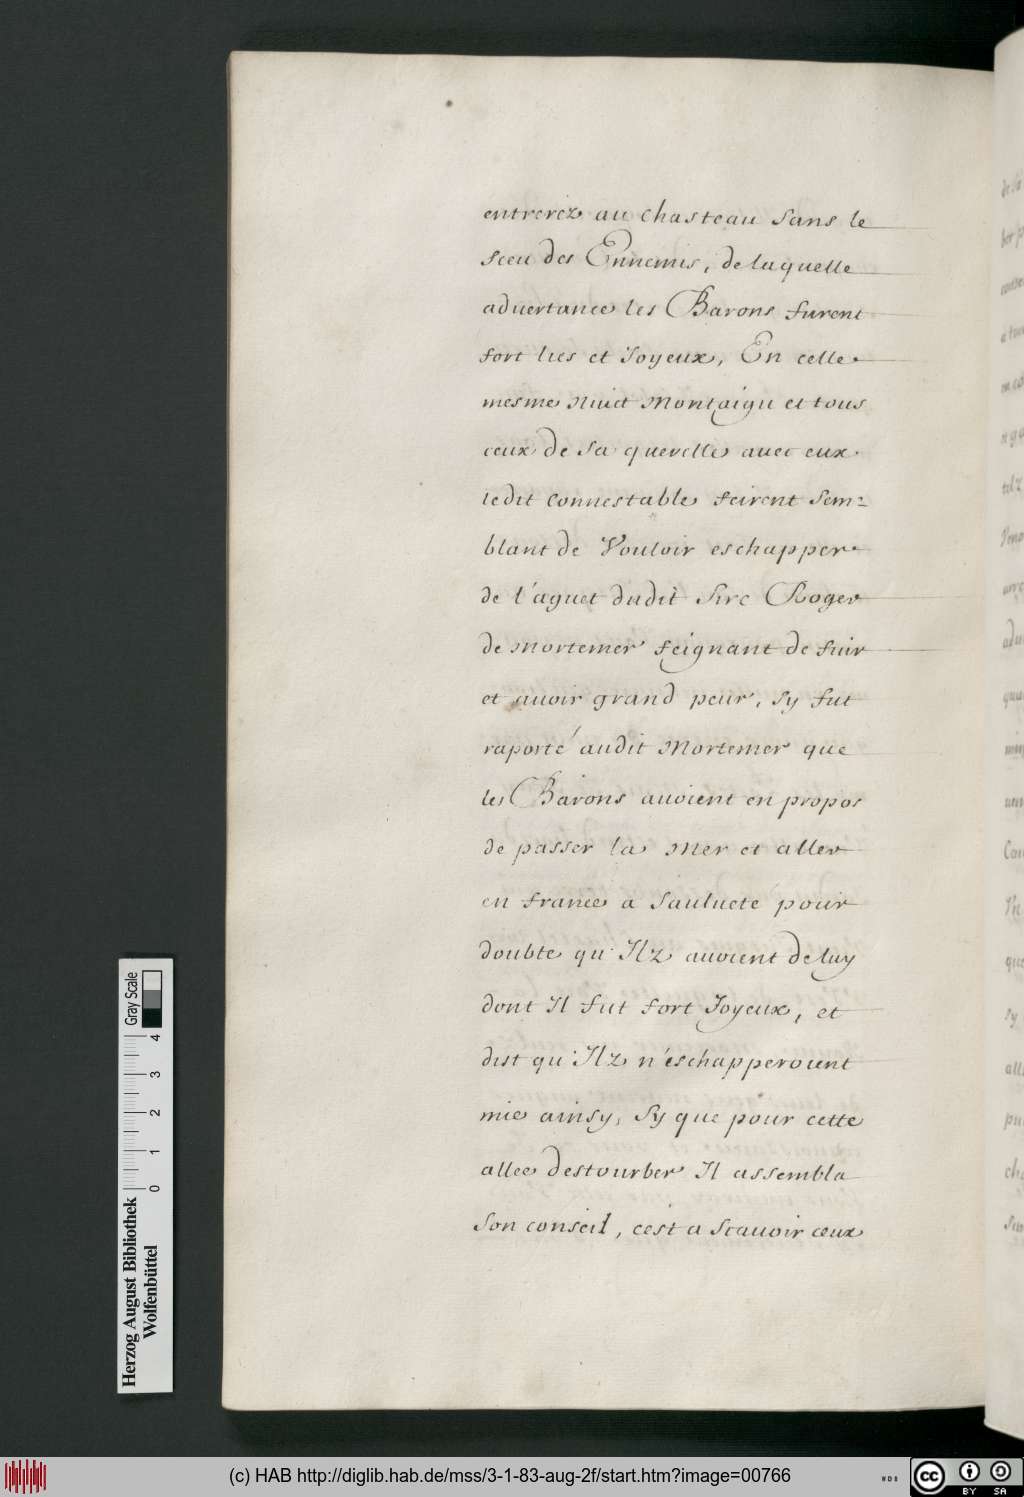 entrerez au chasteau sans le
sceu des Ennemis, de laquelle
advertance les Barons furent
fort lies et Joyeux, En celle
mesme Nuict Montaigu et tous
ceux de sa querelle avec eux
ledit Connestable feirent sem-
blant de Vouloir eschapper
de l'aguet dudit Sire Roger
de Mortemer feignant de fuir
et avoir grand peur, sy fut
raporté audit Mortemer que
les Barons avoient en propos
de passer la Mer et aller
en france a Saulveté pour
doubte qu'Ilz avoient de luy
dont Il fut fort Joyeux, et
dist qu'Ilz n'eschapperoient
mie ainsy, Sy que pour cette
allee destourber Il assembla
Son conseil, c'est a scavoir ceux
Herzog August Bibliothek
Wolfenbüttel
0 1 2 3 4
Gray Scale
(c) HAB http://diglib.hab.de/mss/3-1-83-aug-2f/start.htm?image=00766
WDB
cc BY SA